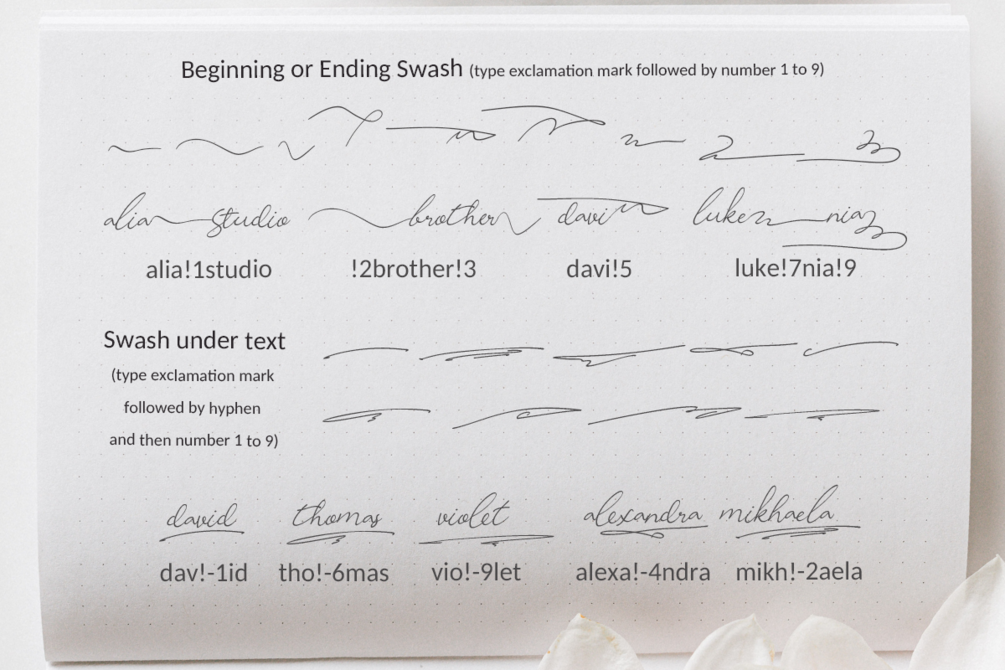 Beginning or Ending Swash (type exclamation mark followed by number 1 to 9)
alia studio brother davi luke nia
alia!1studio !2brother!3 davi!5 luke!7nia!9
Swash under text
(type exclamation mark
followed by hyphen
and then number 1 to 9)
david thomas violet alexandra mikhaela
dav!-1id tho!-6mas vio!-9let alexa!-4ndra mikh!-2aela